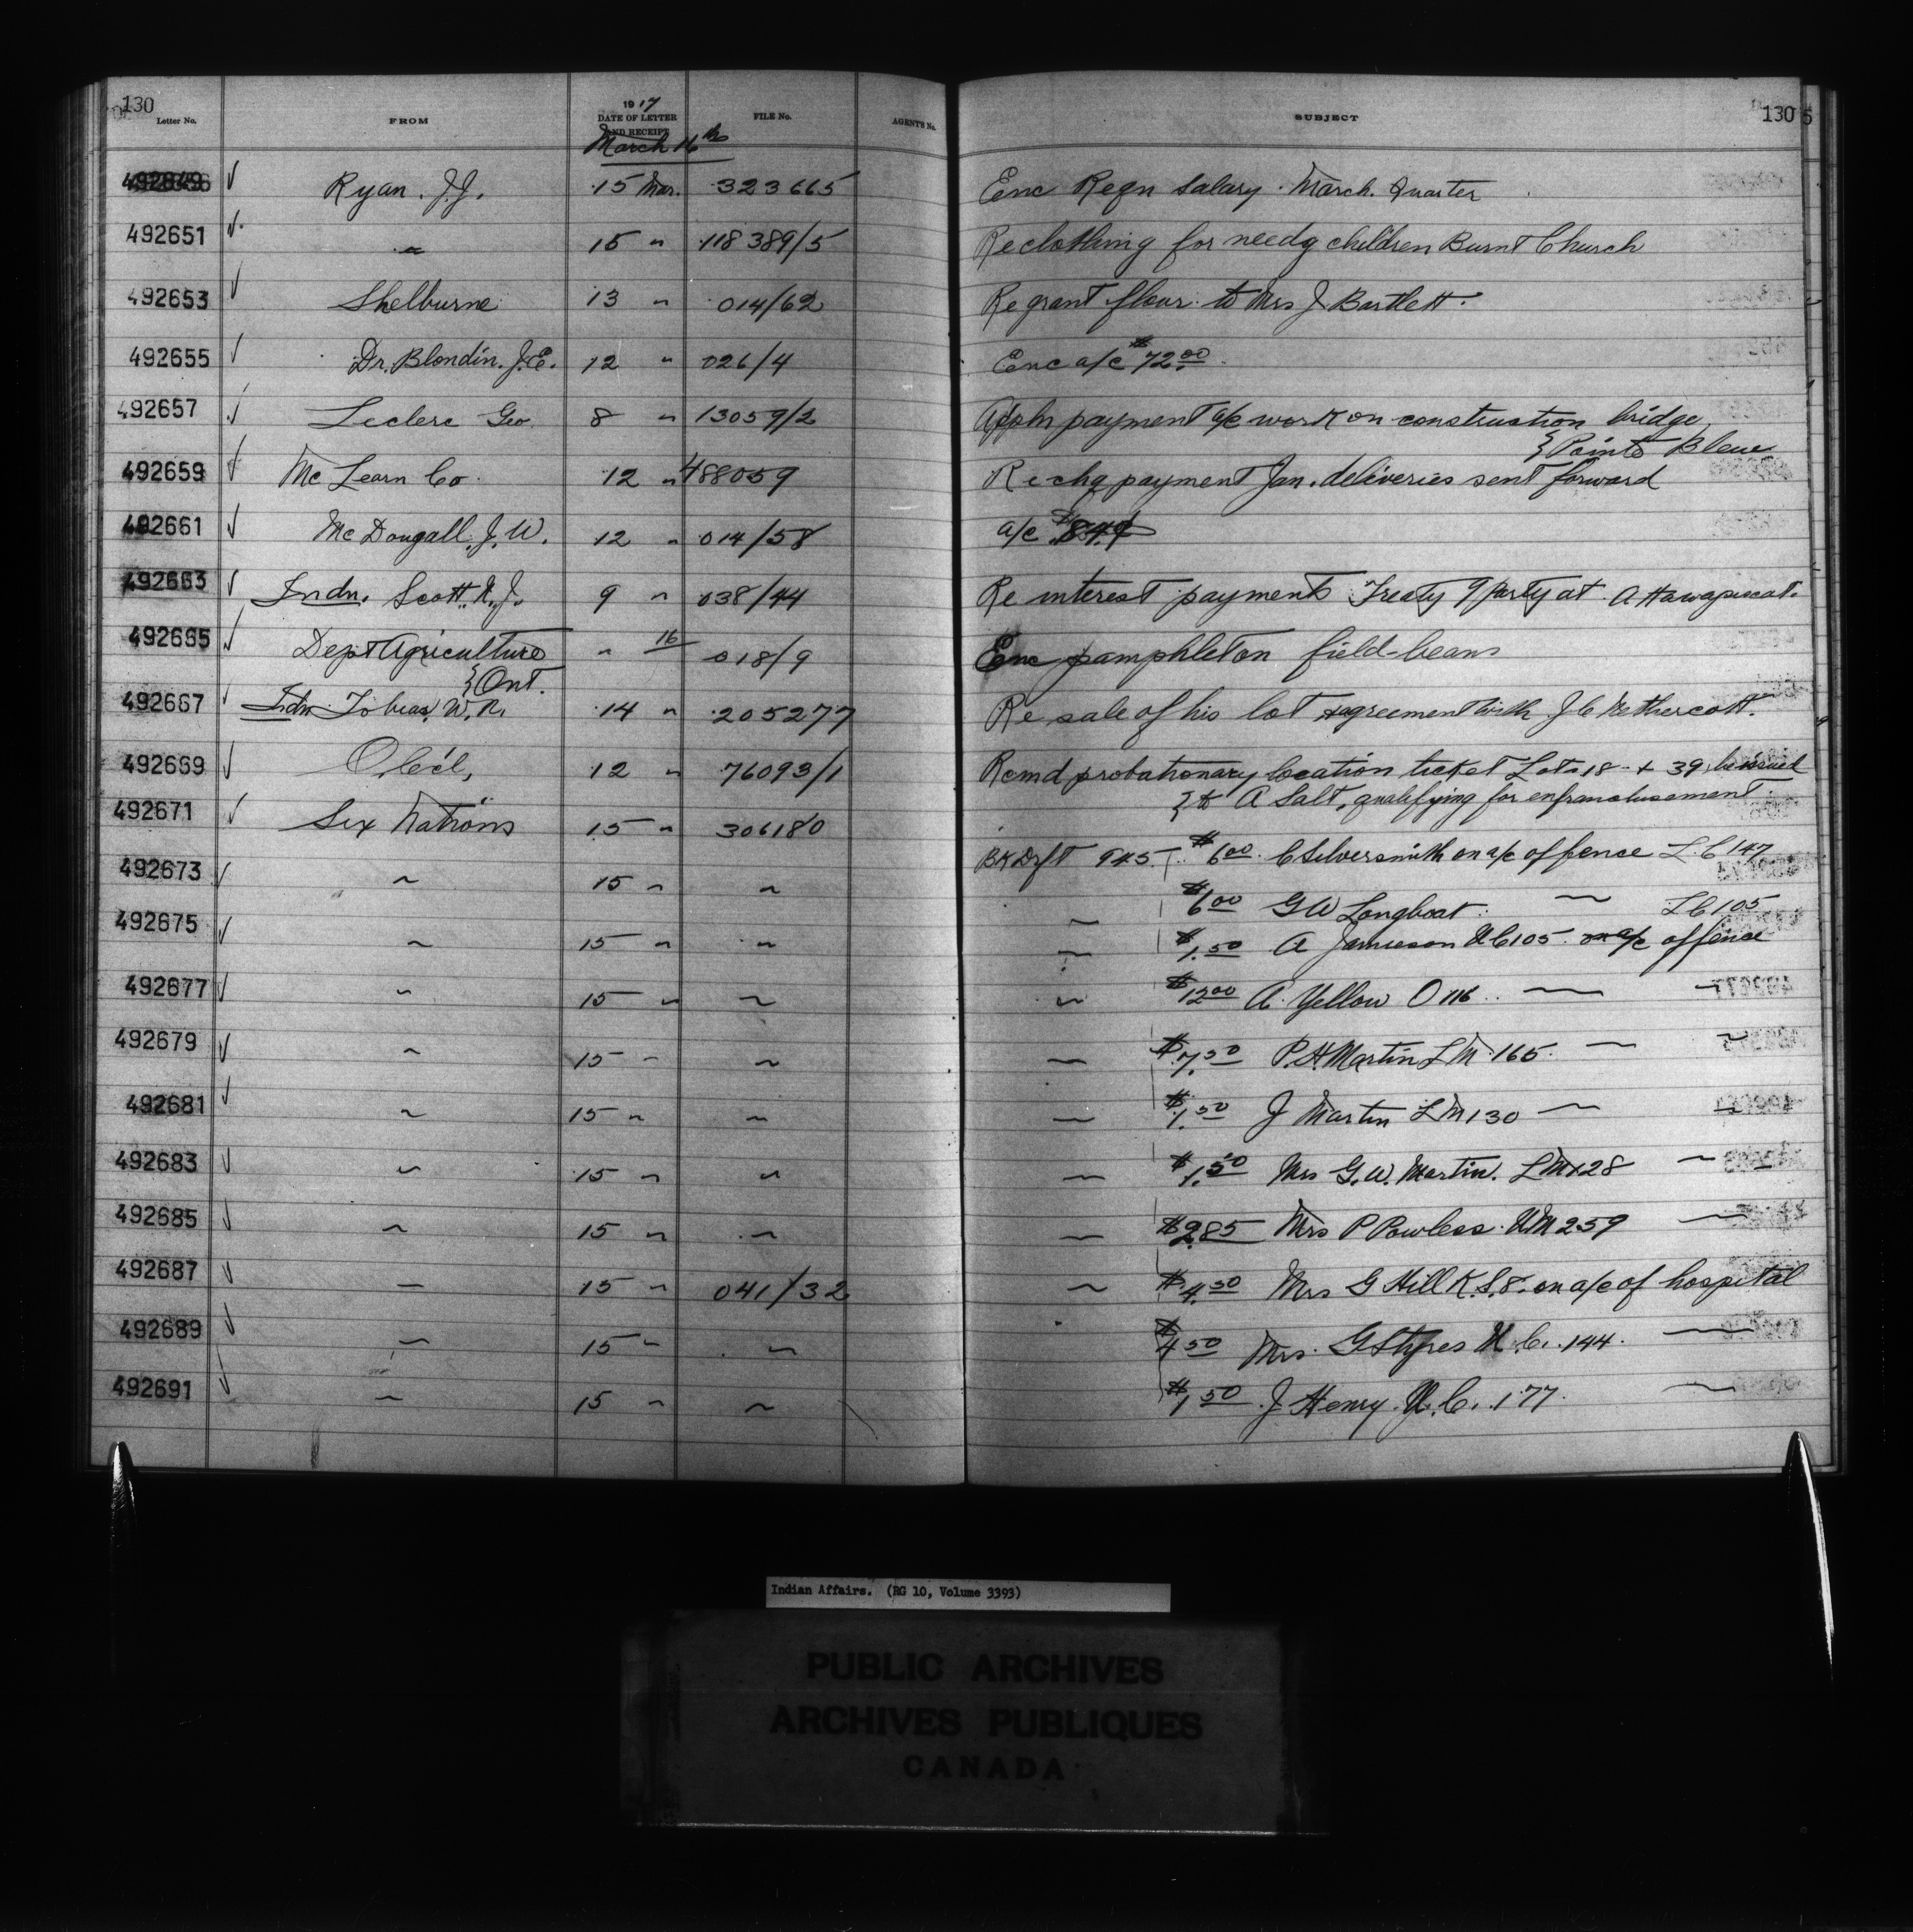 130
Letter No. FROM 1917 DATE OF LETTER AND RECEIPT FILE No. AGENT'S No. SUBJECT 130
March 16th
492649 ✓ Ryan. J.J. 15 Mar. 323665 Enc Reqn Salary. March. Quarter
492651 ✓ " 15 " 118389/5 Re clothing for needy children Burnt Church
492653 ✓ Shelburne 13 " 014/62 Re grant flour to Mrs J Bartlett.
492655 ✓ Dr. Blondin. J.E. 12 " 026/4 Enc a/c $72.00
492657 ✓ Leclerc Geo. 8 " 13059/2 Appln payment a/c work on construction bridge
} Pointe Bleue
492659 ✓ McLearn Co. 12 " 488059 Re chq payment Jan. deliveries sent forward
492661 ✓ McDougall, J. W. 12 " 014/58 a/c
492663 ✓ Indn. Scott, W. J. 9 " 038/44 Re interest payments Treaty 9 Party at Attawapiscat.
492665 ✓ Dept Agriculture " 16 018/9 Enc pamphlet on field-beans
} Ont.
492667 ✓ Indn. Tobias, W. R. 14 " 205277 Re sale of his lot & agreement with J C Nethercott.
492669 ✓ 12 " 76093/1 Rcmd probationary location ticket Lots 18 + 39 be issued
} to A Salt, qualifying for enfranchisement.
492671 ✓ Six Nations 15 " 306180 Bk Dft 945 $6.00 C Silversmith on a/c of fence L C 147
492673 ✓ " 15 " " " $6.00 G W Longboat " L C 105
492675 ✓ " 15 " " " $1.50 A Jamieson U C 105 on a/c of fence
492677 ✓ " 15 " " " $12.00 A. Yellow O 116 " "
492679 ✓ " 15 " " " $7.50 P. H. Martin L M 165. " "
492681 ✓ " 15 " " " $1.50 J Martin L M 130 " "
492683 ✓ " 15 " " " $1.50 Mrs G. W. Martin. L M 128 " "
492685 ✓ " 15 " " " $2.85 Mrs P Powless U M 259 "
492687 ✓ " 15 " 041/32 " $4.50 Mrs G Hill K. S. 8. on a/c of hospital
492689 ✓ " 15 " " $4.50 Mrs. G Styres U. C. 144. "
492691 ✓ " 15 " " $1.50 J Henry. U. C. 177. "
Indian Affairs. (RG 10, Volume 3393)
PUBLIC ARCHIVES
ARCHIVES PUBLIQUES
CANADA